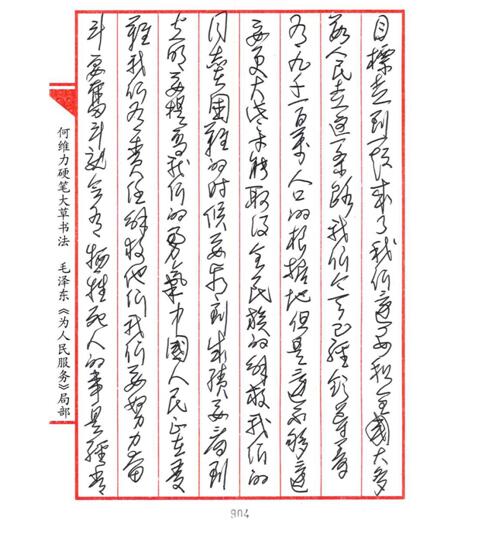 目標走到一起来了我们还要和全國大多
数人民走这一条路我们今天已經领导着
有九千一百萬人口的根据地但是还不够还
要更大些才能取得全民族的解放我们的
同志在困難的时候要看到成绩要看到
光明要提高我们的勇氣中國人民正在受
難我们有责任解救他们我们要努力奋
斗要奮斗就会有牺牲死人的事是經常
何维力硬笔大草书法 毛泽东《为人民服务》局部
904